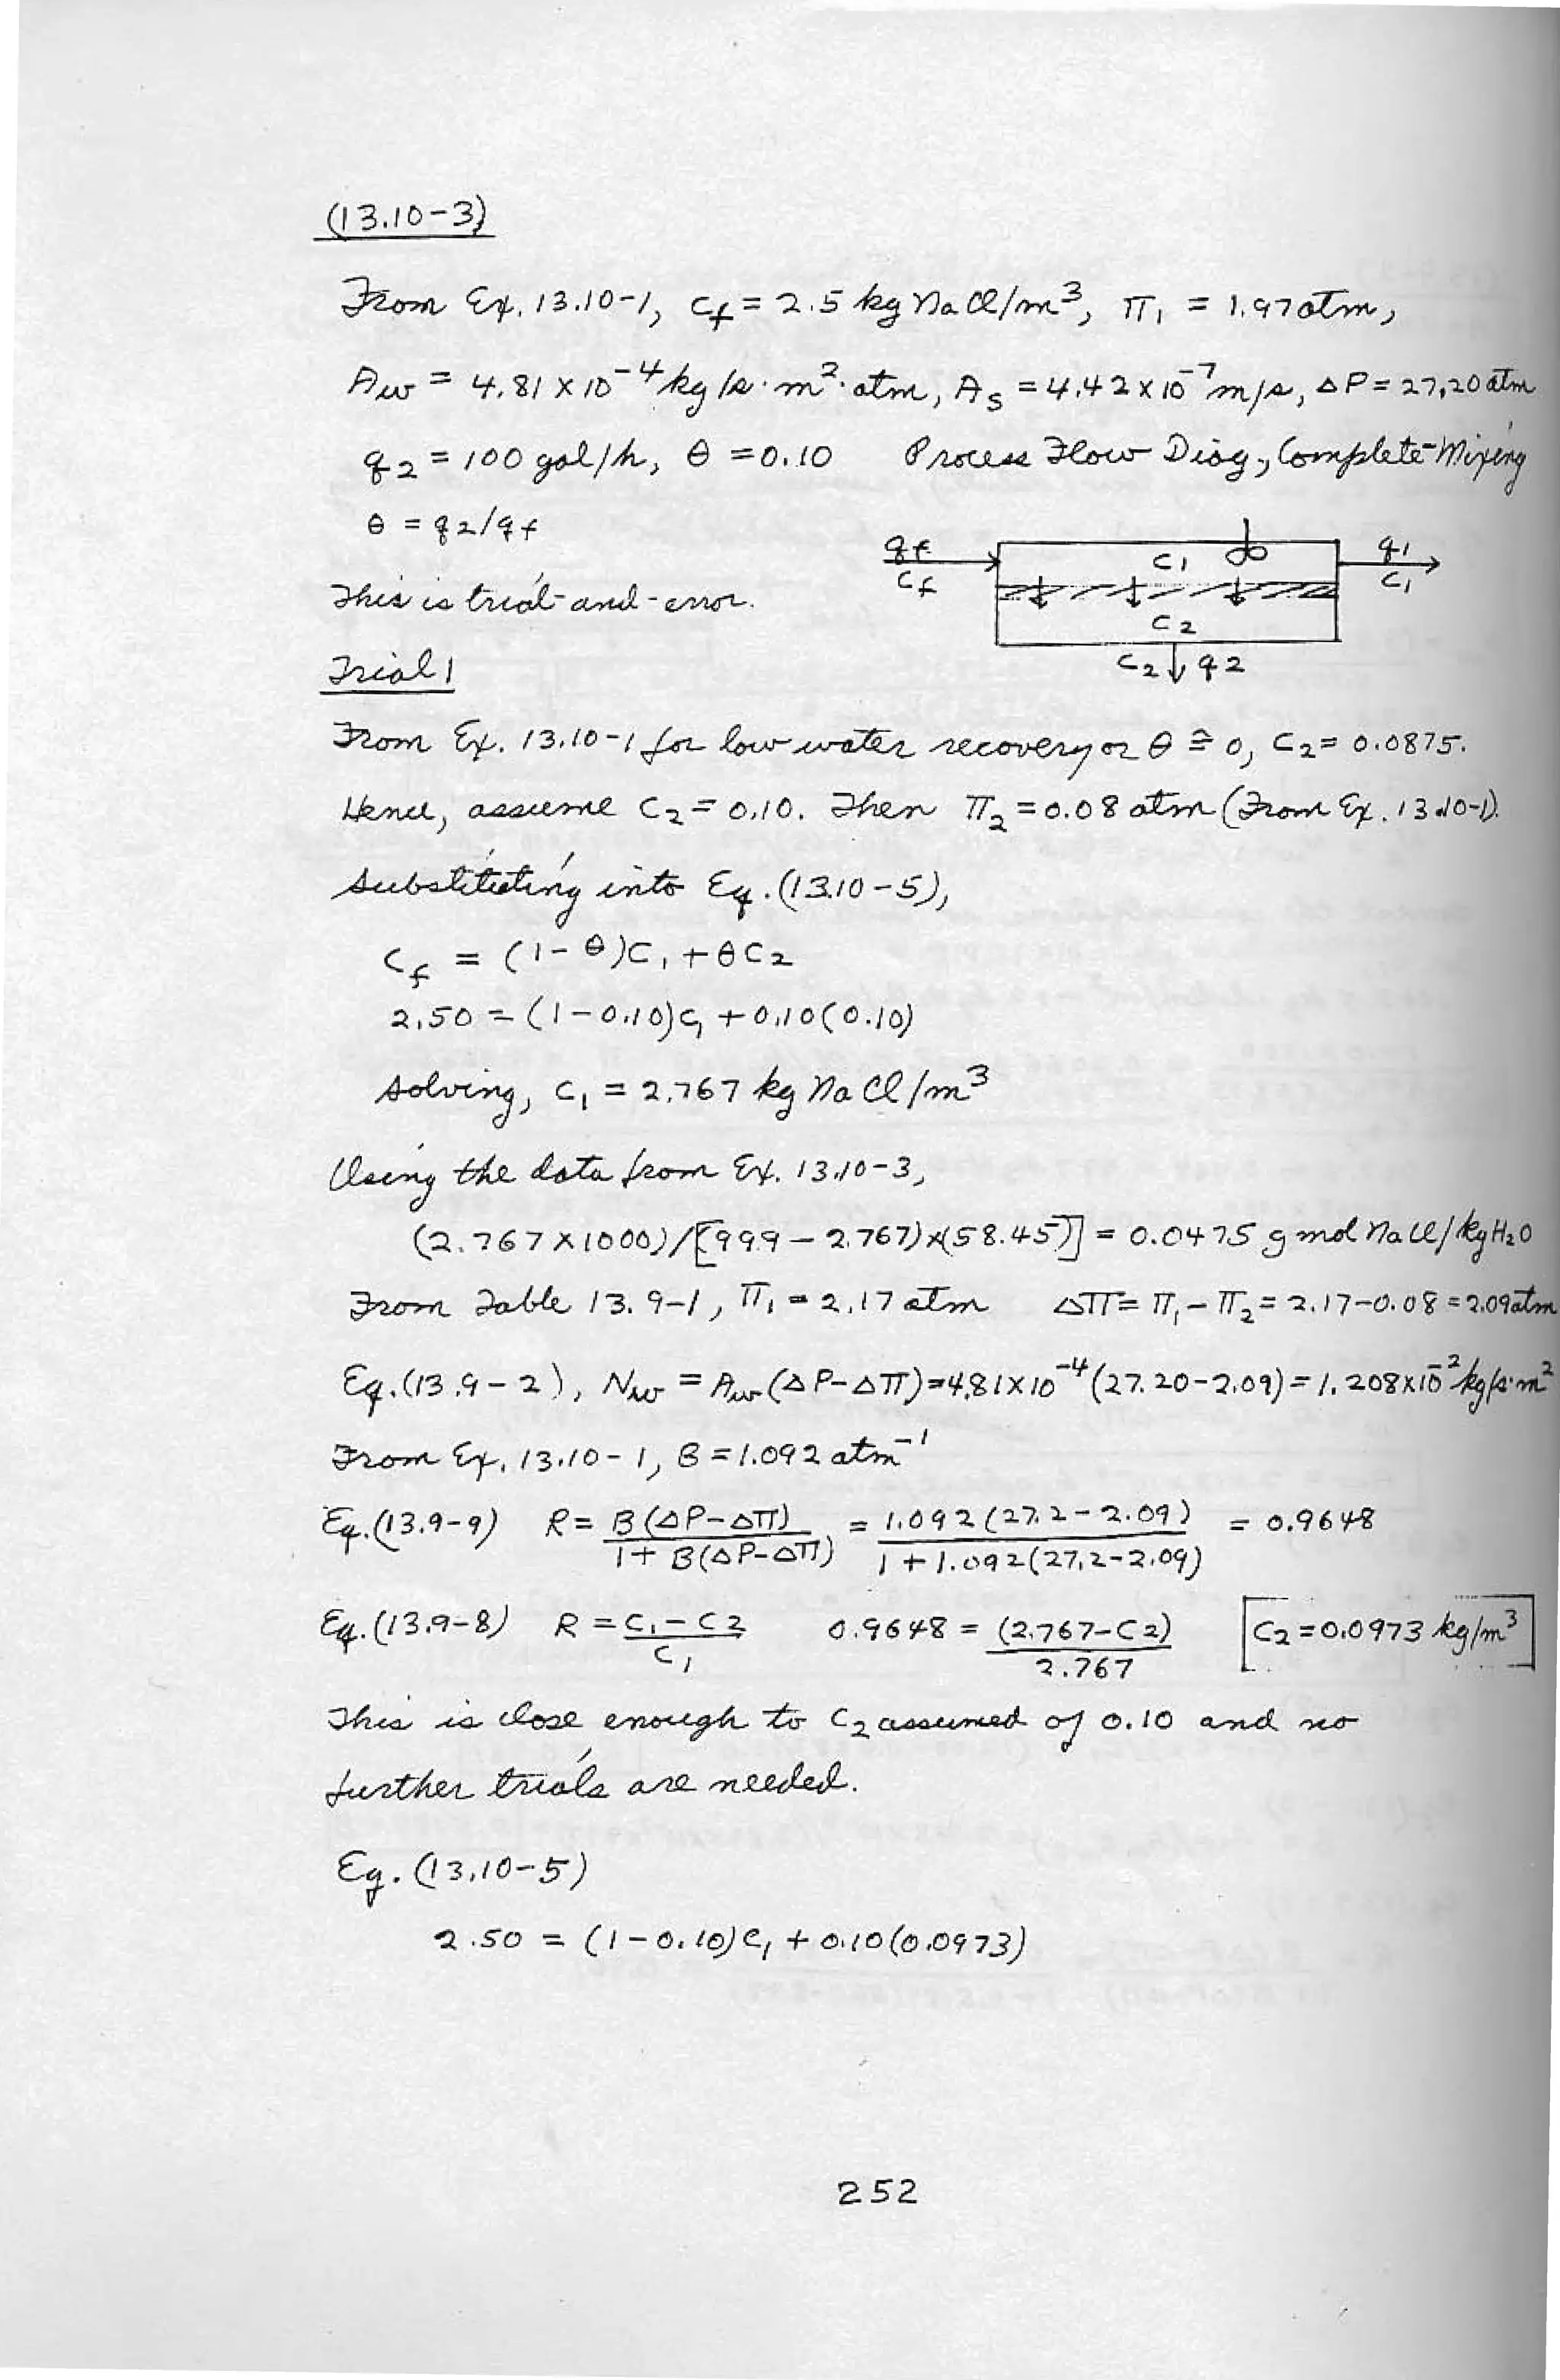 (13.10-3)
From Ex. 13.10-1, cf = 2.5 kg NaCl/m³, π₁ = 1.97 atm,
Aw = 4.81 x 10⁻⁴ kg/s·m²·atm, As = 4.42 x 10⁻⁷ m/s, ΔP = 27.20 atm
q₂ = 100 gal/h, θ = 0.10 Process Flow Diag., Complete-Mixing
θ = q₂/qf
qf cf c₁ q₁ c₁
c₂
c₂ q₂
This is trial-and-error.
Trial 1
From Ex. 13.10-1 for low water recovery or θ ≅ 0, c₂ = 0.0875.
Hence, assume c₂ = 0.10. Then π₂ = 0.08 atm (From Ex. 13.10-1).
Substituting into Eq. (13.10-5),
cf = (1-θ)c₁ + θc₂
2.50 = (1-0.10)c₁ + 0.10(0.10)
Solving, c₁ = 2.767 kg NaCl/m³
Using the data from Ex. 13.10-3,
(2.767 x 1000)/[999 - 2.767)x(58.45)] = 0.0475 g mol NaCl/kg H₂O
From Table 13.9-1, π₁ = 2.17 atm Δπ = π₁ - π₂ = 2.17-0.08 = 2.09 atm
Eq. (13.9-2), Nw = Aw(ΔP-Δπ) = 4.81x10⁻⁴(27.20-2.09) = 1.208x10⁻² kg/s·m²
From Ex. 13.10-1, B = 1.092 atm⁻¹
Eq. (13.9-9) R = B(ΔP-Δπ) / 1+B(ΔP-Δπ) = 1.092(27.2-2.09) / 1+1.092(27.2-2.09) = 0.9648
Eq. (13.9-8) R = c₁-c₂ / c₁ 0.9648 = (2.767-c₂) / 2.767 c₂ = 0.0973 kg/m³
This is close enough to c₂ assumed of 0.10 and no
further trials are needed.
Eq. (13.10-5)
2.50 = (1-0.10)c₁ + 0.10(0.0973)
252